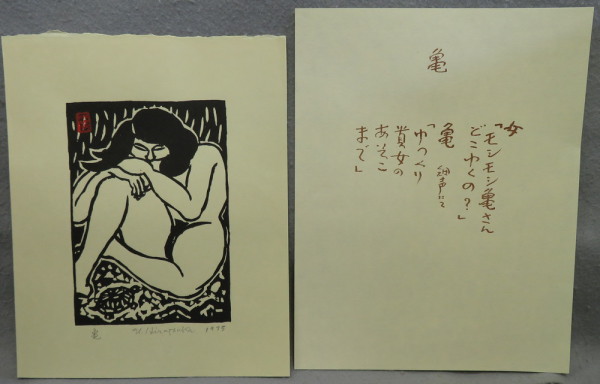 亀
女
「モシモシ亀さん
どこゆくの？」
亀 細声にて
「ゆっくり
貴女の
あそこ
まで」
亀
1978